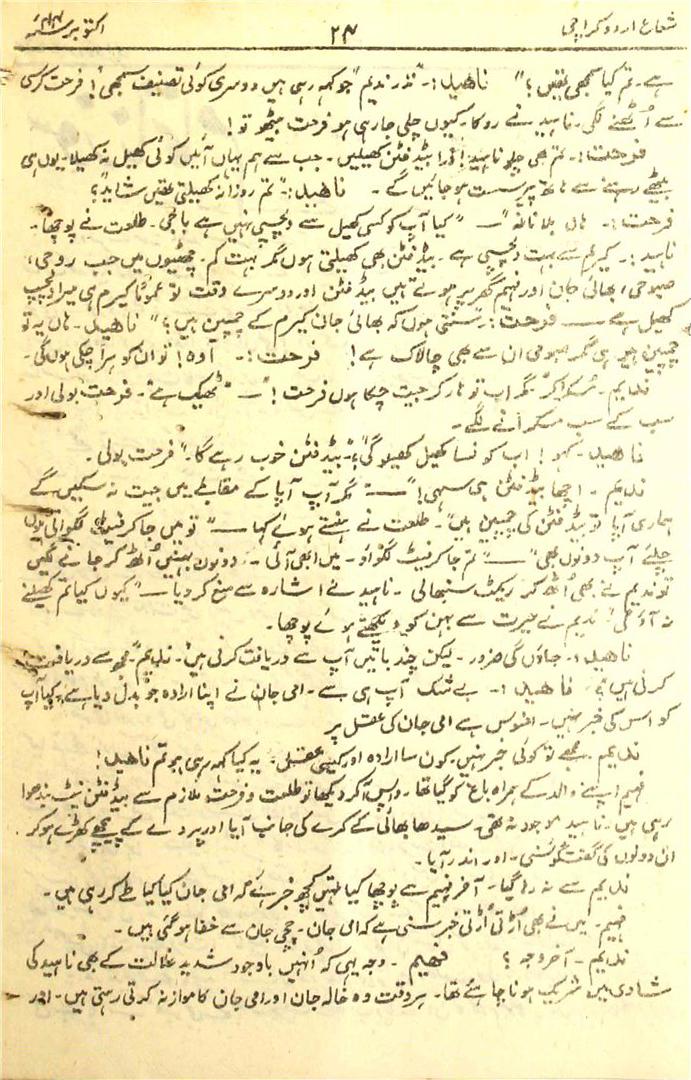 شعاع اردو کراچی
۲۴
اکتوبر ۴۴ء
ہے۔ تم کیا سمجھی تھیں؟" ناھید:۔ "نذر ندیم" جو کہہ رہی ہیں دوسری کوئی تصنیف سمجھی! فرحت کرسی
سے اُٹھنے لگی۔ ناہید نے روکا۔ کیوں چلی جا رہی ہو فرحت بیٹھو تو!
فرحت:۔ تم بھی چلو ناہید! ذرا بیڈ فنٹن کھیلیں۔ جب سے ہم یہاں آئیں کوئی کھیل نہ کھیلا۔ یوں ہی
بیٹھے رہنے سے ہاتھ پیر سست ہو جائیں گے۔ ناھید:۔ "تم روزانہ کھیلتی تھیں شاید؟"
فرحت:۔ ہاں بلا ناغہ"۔ "کیا آپ کو کسی کھیل سے دلچسپی نہیں ہے باجی۔ طلعت نے پوچھا۔
ناہید:۔ کیرم سے بہت دلچسپی ہے۔ بیڈ فنٹن بھی کھیلتی ہوں مگر بہت کم۔ چھٹیوں میں جب روحی،
صبوحی، بھائی جان اور فہیم گھر پر ہوتے ہیں بیڈ فنٹن اور دوسرے وقت تو عموماً کیرم ہی میرا دلچسپ
کھیل ہے۔ فرحت:۔ سنتی ہوں کہ بھائی جان کیرم کے چمپین ہیں؟" ناھید۔ ہاں یہ تو
چمپین ہیں ہی مگر صبوحی ان سے بھی چالاک ہے! فرحت:۔ اوہ! تو ان کو ہرا چکی ہوں گی۔
ندیم۔ مسکرا کر مگر اب تو ہار کر جیت چکا ہوں فرحت! "۔ "ٹھیک ہے"۔ فرحت بولی اور
سب کے سب مسکرانے لگے۔
ناھید۔ کہو! اب کونسا کھیل کھیلو گی؟ "بیڈ فنٹن خوب رہے گا۔" فرحت بولی۔
ندیم۔ اچھا بیڈ فنٹن ہی سہی! "۔ "مگر آپ آپا کے مقابلے میں جیت نہ سکیں گے
ہماری آپا تو بیڈ فنٹن کی چمپین ہیں"۔ طلعت نے ہنستے ہوئے کہا۔ "تو میں جا کر نیٹ لگواتی ہوں
چلئے آپ دونوں بھی"۔ "تم جا کر نیٹ لگواؤ۔ میں ابھی آئی۔ دونوں بہنیں اُٹھ کر جانے لگیں
تو ندیم نے بھی اُٹھ کر ریکٹ سنبھالی۔ ناہید نے اشارہ سے منع کر دیا۔ "کیوں کیا تم کھیلنے
نہ آؤ گی" ندیم نے حیرت سے بہن کو دیکھتے ہوئے پوچھا۔
ناھید:۔ جاؤں گی ضرور۔ لیکن چند باتیں آپ سے دریافت کرنی ہیں۔ ندیم۔ "مجھ سے دریافت
کرنی ہیں؟" ناھید:۔ بے شک آپ ہی سے۔ امی جان نے اپنا ارادہ جو بدل دیا ہے۔ کیا آپ
کو اس کی خبر نہیں۔ افسوس ہے امی جان کی عقل پر
ندیم۔ مجھے تو کوئی خبر نہیں۔ کون سا ارادہ اور کیسی عقل۔ یہ کیا کہہ رہی ہو تم ناھید!
فہیم اپنے والد کے ہمراہ باغ کو گیا تھا۔ واپس آ کر دیکھا تو طلعت و فرحت ملازم سے بیڈ فنٹن نیٹ بندھوا
رہی ہیں۔ ناہید موجود نہ تھی۔ سیدھا بھائی کے کمرے کی جانب آیا اور پردے کے پیچھے کھڑے ہو کر
ان دونوں کی گفتگو سنی۔ اور اندر آیا۔
ندیم سے نہ رہا گیا۔ آخر فہیم سے پوچھا کیا تمہیں کچھ خبر ہے کہ امی جان کیا کیا طے کر رہی ہیں۔
فہیم۔ میں نے بھی اُڑتی اُڑتی خبر سنی ہے کہ امی جان۔ چچی جان سے خفا ہو گئی ہیں۔
ندیم۔ آخر وجہ؟ فہیم۔ وجہ یہی کہ اُنہیں باوجود شدید علالت کے بھی ناہید کی
شادی میں شریک ہونا چاہئے تھا۔ ہر وقت وہ خالہ جان اور امی جان کا موازنہ کرتی رہتی ہیں۔ اور